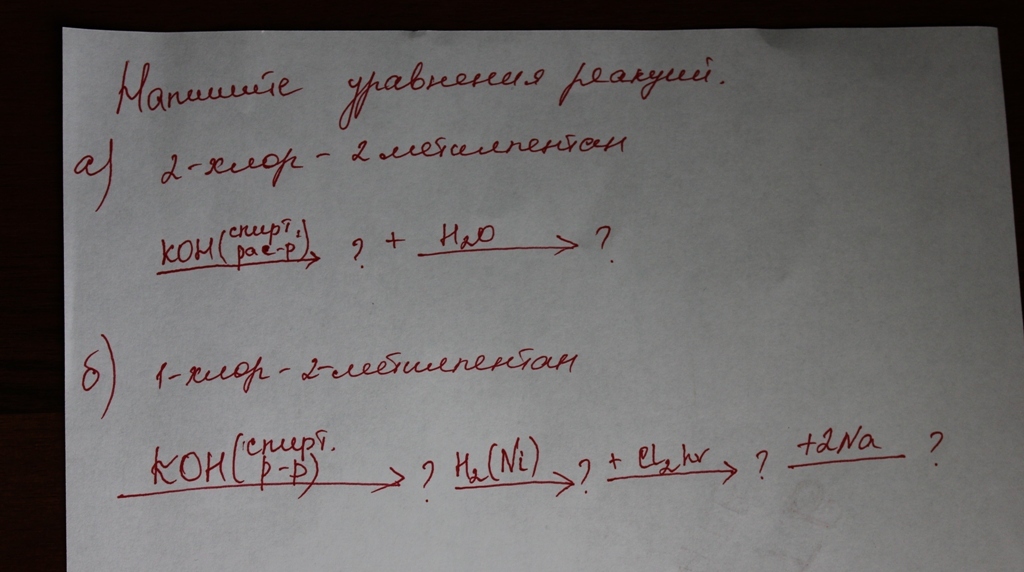 Напишите уравнения реакций.
а) 2-хлор-2метилпентан
KOH(спирт. рас-р) → ? + H₂O → ?
б) 1-хлор-2-метилпентан
KOH(спирт. р-р) → ? H₂(Ni) → ? + Cl₂ hν → ? +2Na ?